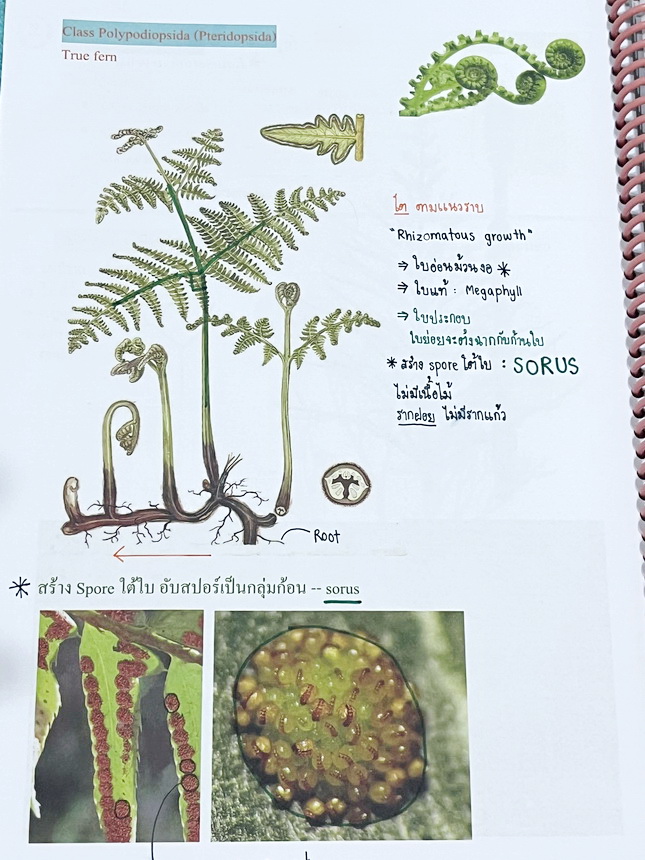 Class Polypodiopsida (Pteridopsida)
True fern
โต ตามแนวราบ
"Rhizomatous growth"
⇒ ใบอ่อนม้วนงอ *
⇒ ใบแท้ : Megaphyll
⇒ ใบประกอบ
ใบย่อยจะตั้งฉากกับก้านใบ
* สร้าง spore ใต้ใบ : SORUS
ไม่มีเนื้อไม้
รากฝอย ไม่มีรากแก้ว
Root
* สร้าง Spore ใต้ใบ อับสปอร์เป็นกลุ่มก้อน -- sorus